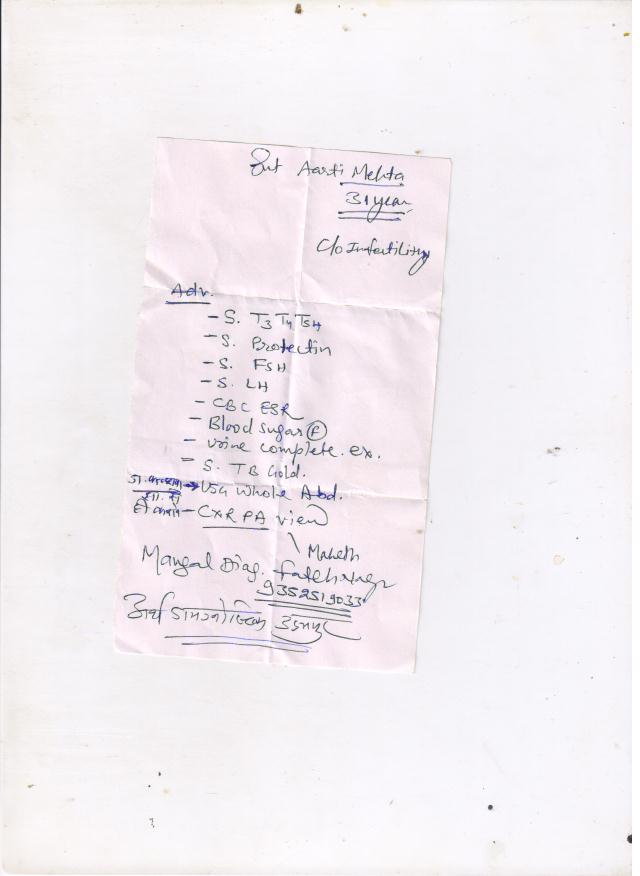 Smt Aarti Mehta
31 year
C/o Infertility
Adv.
- S. T3 T4 TSH
- S. Prolectin
- S. FSH
- S. LH
- CBC ESR
- Blood Sugar (F)
- Urine complete. ex.
- S. TB Gold.
→ USG Whole Abd.
- CXR PA view
Mangal Diag.
9352519033